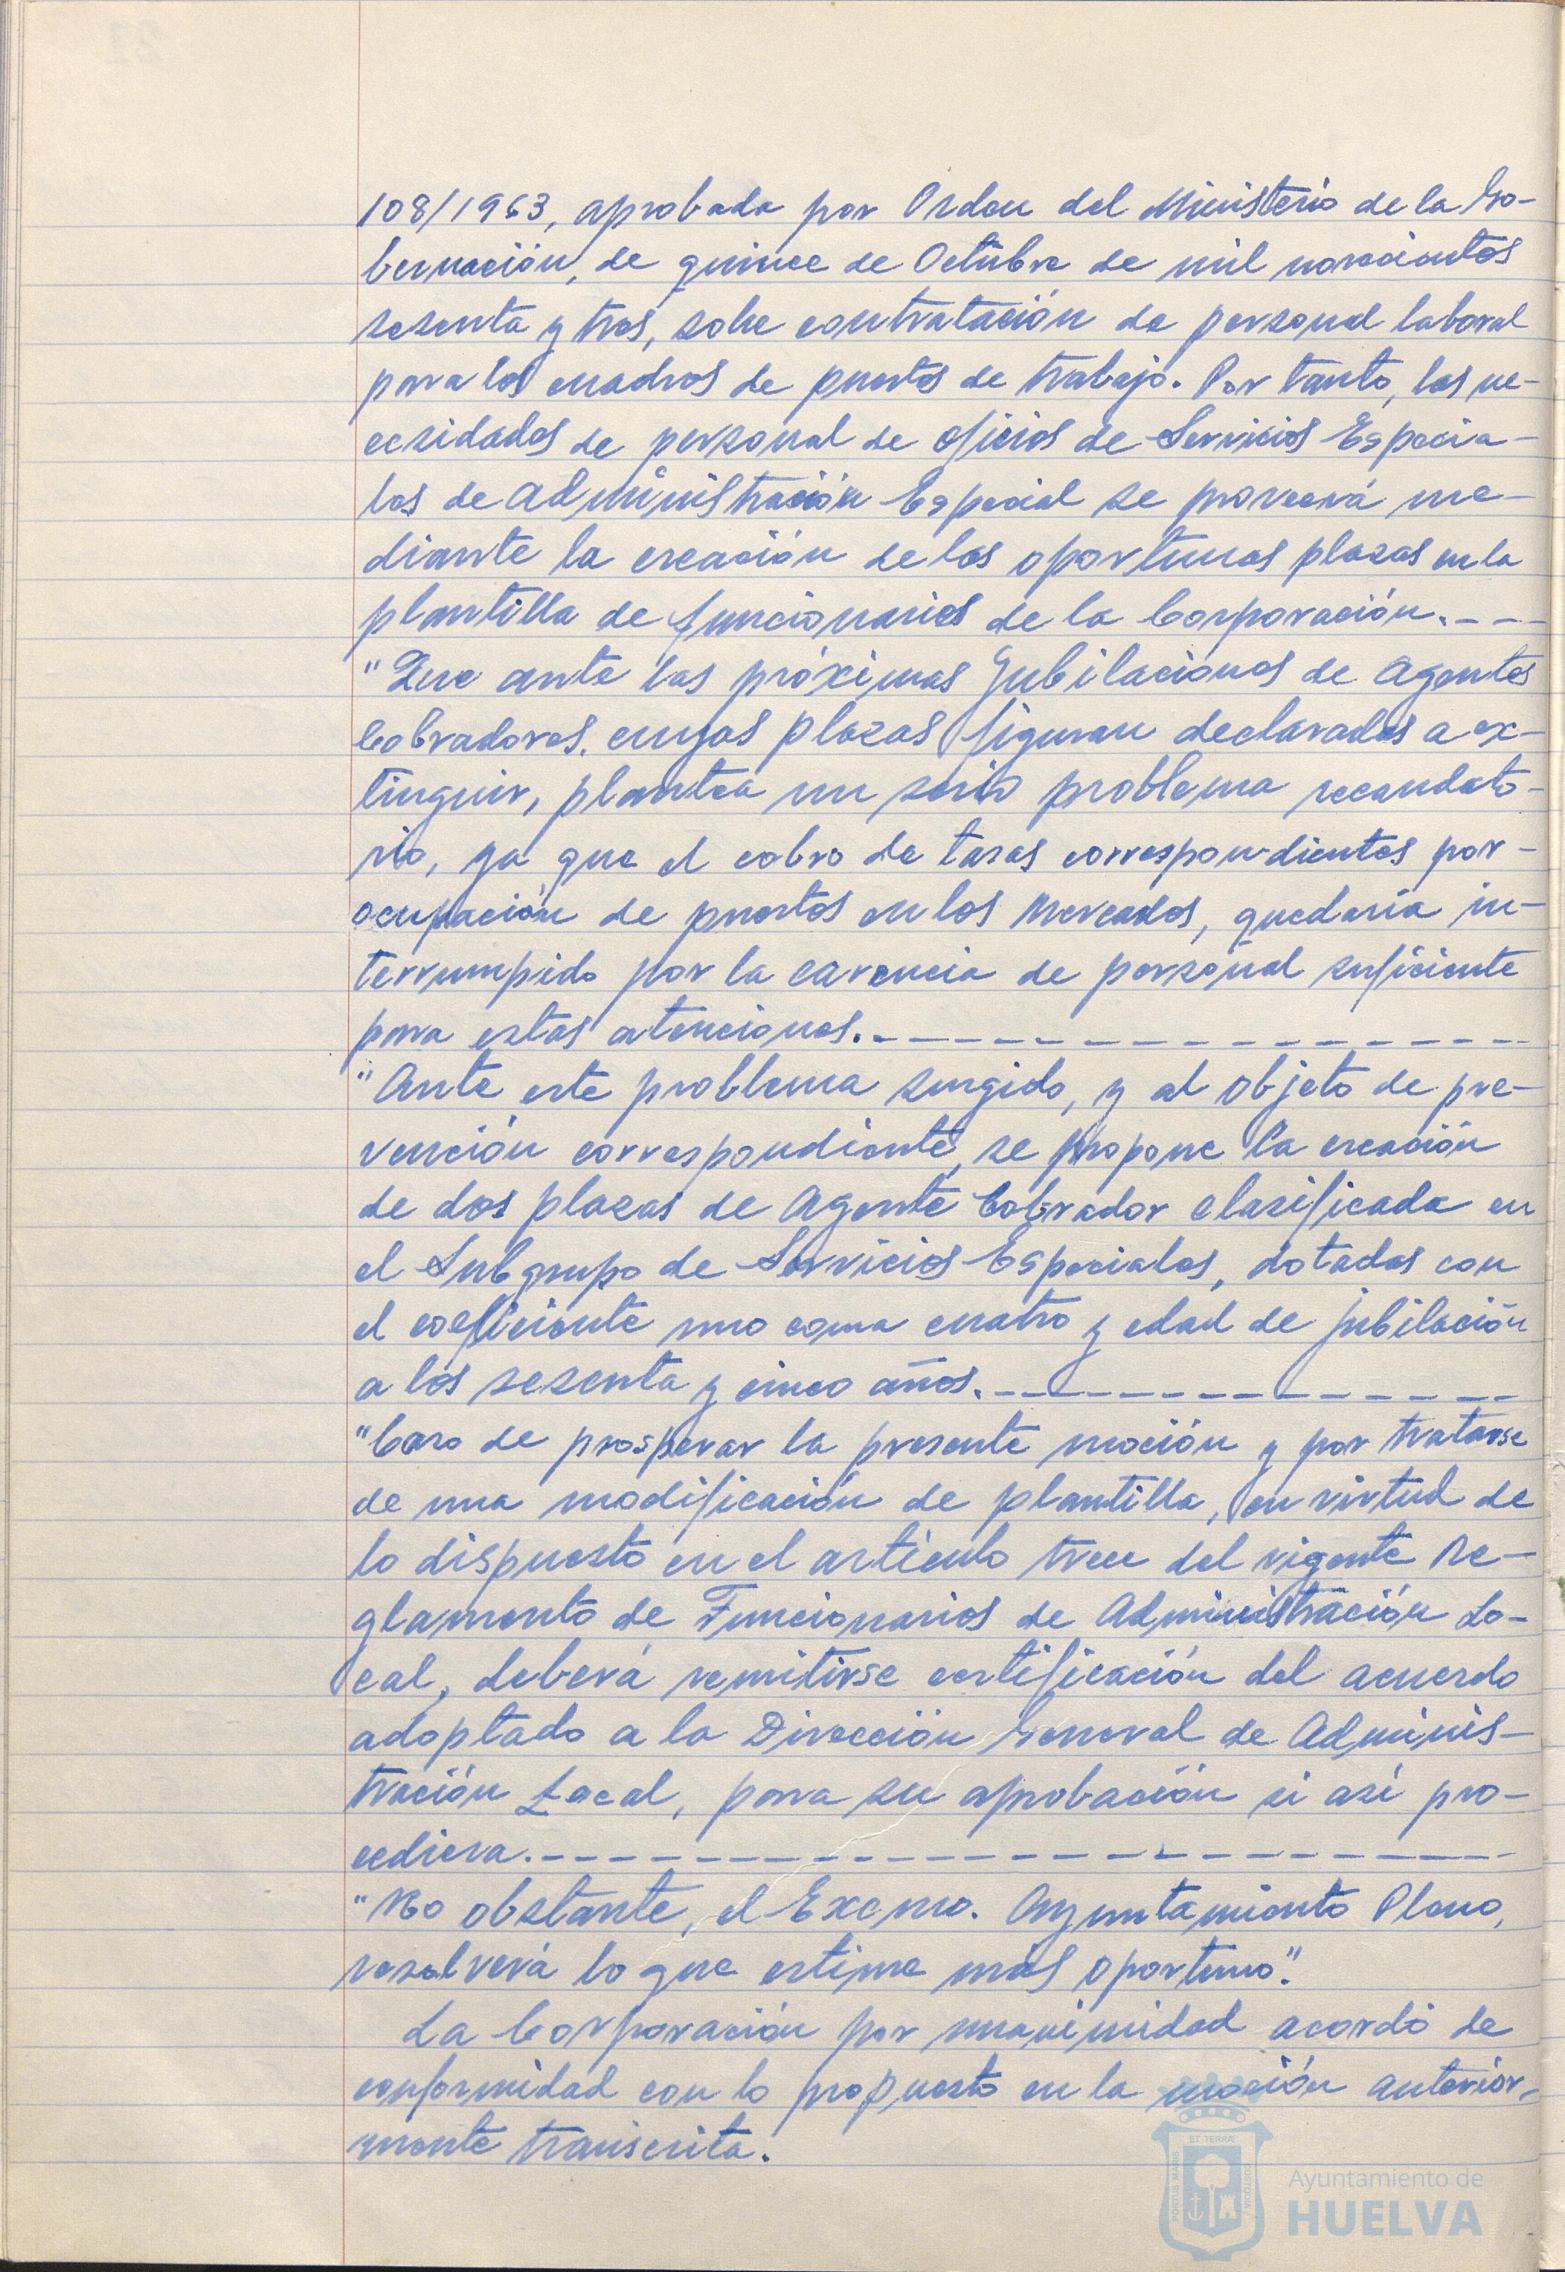 108/1963, aprobada por Orden del Ministerio de la Go-
bernación, de quince de Octubre de mil novecientos
sesenta y tres, sobre contratación de personal laboral
para los cuadros de puestos de trabajo. Por tanto, las ne-
cesidades de personal de oficios de Servicios Especia-
les de Administración Especial se proveerá me-
diante la creación de las oportunas plazas en la
plantilla de funcionarios de la Corporación.---
"Que ante las próximas jubilaciones de Agentes
Cobradores, cuyas plazas figuran declaradas a ex-
tinguir, plantea un serio problema recaudato-
rio, ya que el cobro de tasas correspondientes por-
ocupación de puestos en los Mercados, quedaría in-
terrumpido por la carencia de personal suficiente
para estas atenciones.---
"Ante este problema surgido, y al objeto de pre-
vención correspondiente, se propone la creación
de dos plazas de Agente Cobrador clasificada en
el Subgrupo de Servicios Especiales, dotadas con
el coeficiente uno coma cuatro y edad de jubilación
a los sesenta y cinco años.---
"Caso de prosperar la presente moción y por tratarse
de una modificación de plantilla, en virtud de
lo dispuesto en el artículo trece del vigente Re-
glamento de Funcionarios de Administración Lo-
cal, deberá remitirse certificación del acuerdo
adoptado a la Dirección General de Adminis-
tración Local, para su aprobación si así pro-
cediera.---
"No obstante, el Excmo. Ayuntamiento Pleno,
resolverá lo que estime más oportuno".
La Corporación por unanimidad acordó de
conformidad con lo propuesto en la moción anterior-
mente transcrita.
ET TERRA
PORTUS MARIS
CUSTODIA
Ayuntamiento de
HUELVA